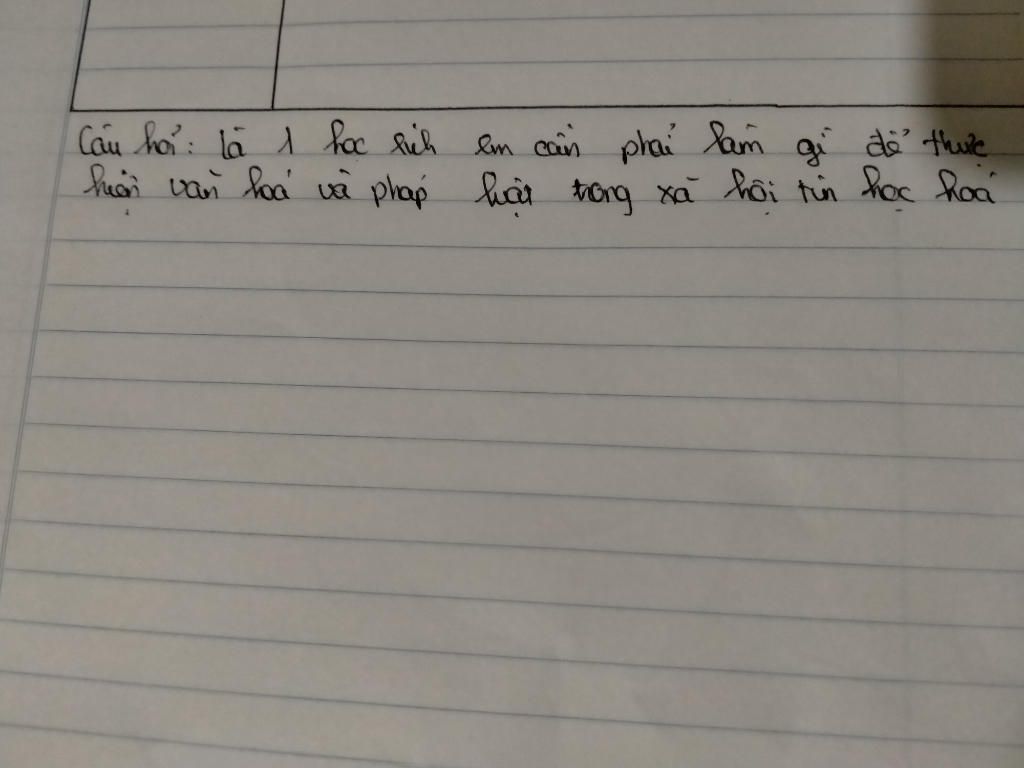 Câu hỏi: Là 1 học sinh em cần phải làm gì để thực
hiện văn hoá và pháp luật trong xã hội tin học hoá